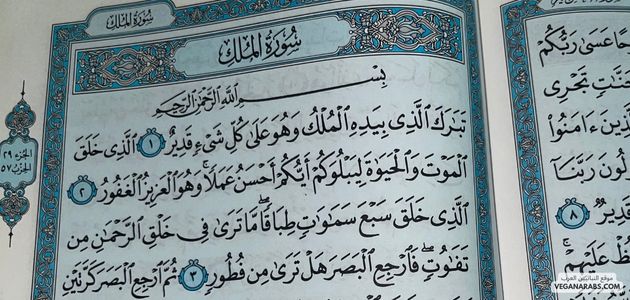 سُورَةُ المُلْكِ
سُورَةُ المُلْكِ
بِسْمِ اللَّهِ الرَّحْمَٰنِ الرَّحِيمِ
تَبَٰرَكَ ٱلَّذِى بِيَدِهِ ٱلْمُلْكُ وَهُوَ عَلَىٰ كُلِّ شَىْءٍ قَدِيرٌ ١ ٱلَّذِى خَلَقَ
ٱلْمَوْتَ وَٱلْحَيَوٰةَ لِيَبْلُوَكُمْ أَيُّكُمْ أَحْسَنُ عَمَلًا ۚ وَهُوَ ٱلْعَزِيزُ ٱلْغَفُورُ ٢
ٱلَّذِى خَلَقَ سَبْعَ سَمَٰوَٰتٍ طِبَاقًا ۖ مَّا تَرَىٰ فِى خَلْقِ ٱلرَّحْمَٰنِ مِن
تَفَٰوُتٍ ۖ فَٱرْجِعِ ٱلْبَصَرَ هَلْ تَرَىٰ مِن فُطُورٍ ٣ ثُمَّ ٱرْجِعِ ٱلْبَصَرَ كَرَّتَيْنِ
الجزء ٢٩
الحزب ٥٧
عَسَىٰ رَبُّكُمْ
جَنَّٰتٍ تَجْرِى
ءَامَنُوا۟
رَبَّنَآ
قَدِيرٌ ٨
عَلَيْهِمْ ۚ
موقع النباتيين العرب
VEGANARABS.COM